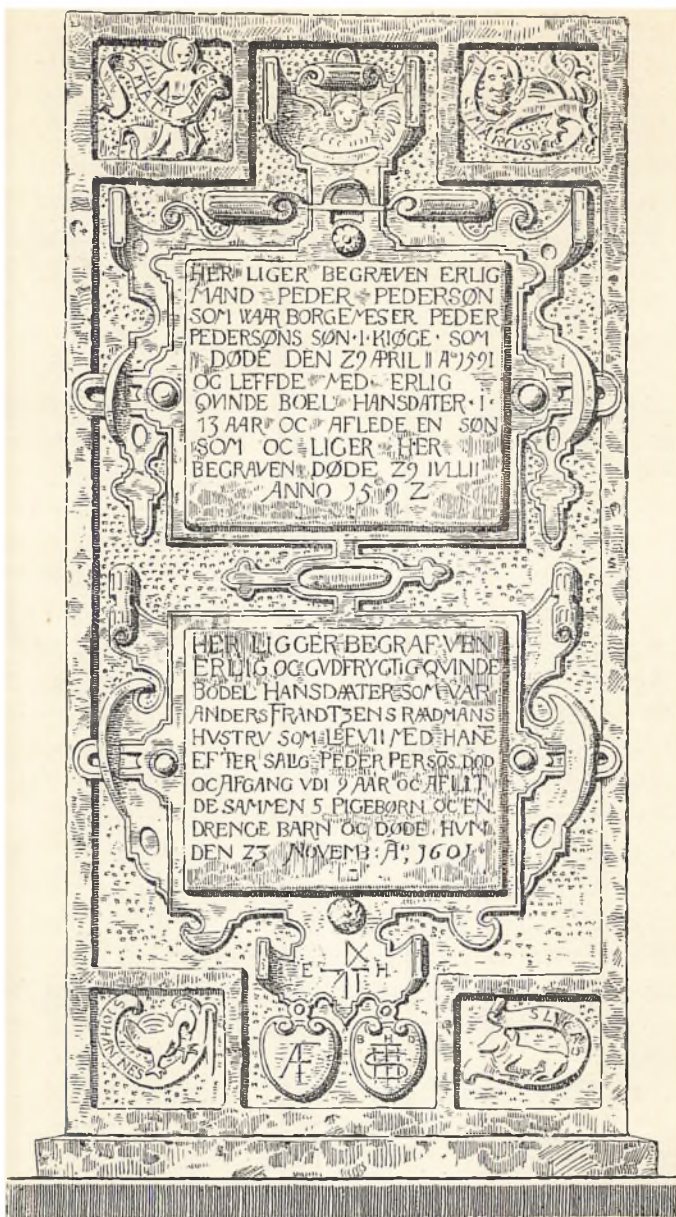 S MATHÆS
S MARCUS
HER LIGER BEGRÆVEN ERLIG
MAND PEDER PEDERSØN
SOM WAAR BORGEMESER PEDER
PEDERSØNS SØN · I · KIØGE · SOM
DØDE DEN 29 APRIL II Aº 1591
OC LEFFDE MED ERLIG
QVINDE BOEL HANSDATER · I ·
13 AAR OC AFLEDE EN SØN
SOM OC LIGER HER
BEGRAVEN DØDE 29 IVLII
ANNO 1592
HER LIGGER BEGRAFVEN
ERLIIG OC GVDFRYGTIG QVINDE
BODEL HANSDAATER SOM VAR
ANDERS FRANDTZENS RAADMANS
HVSTRV SOM LEFVII MED HANE
EFTER SALIG PEDER PERSØS DØD
OC AFGANG VDI 9 AAR OC AFLIT
DE SAMMEN 5 PIGEBØRN OC EN
DRENGE BARN OC DØDE HVN
DEN 23 NOVEMB: Aº 1601
E H
S IOHANNES
AF
B H D
S LVC